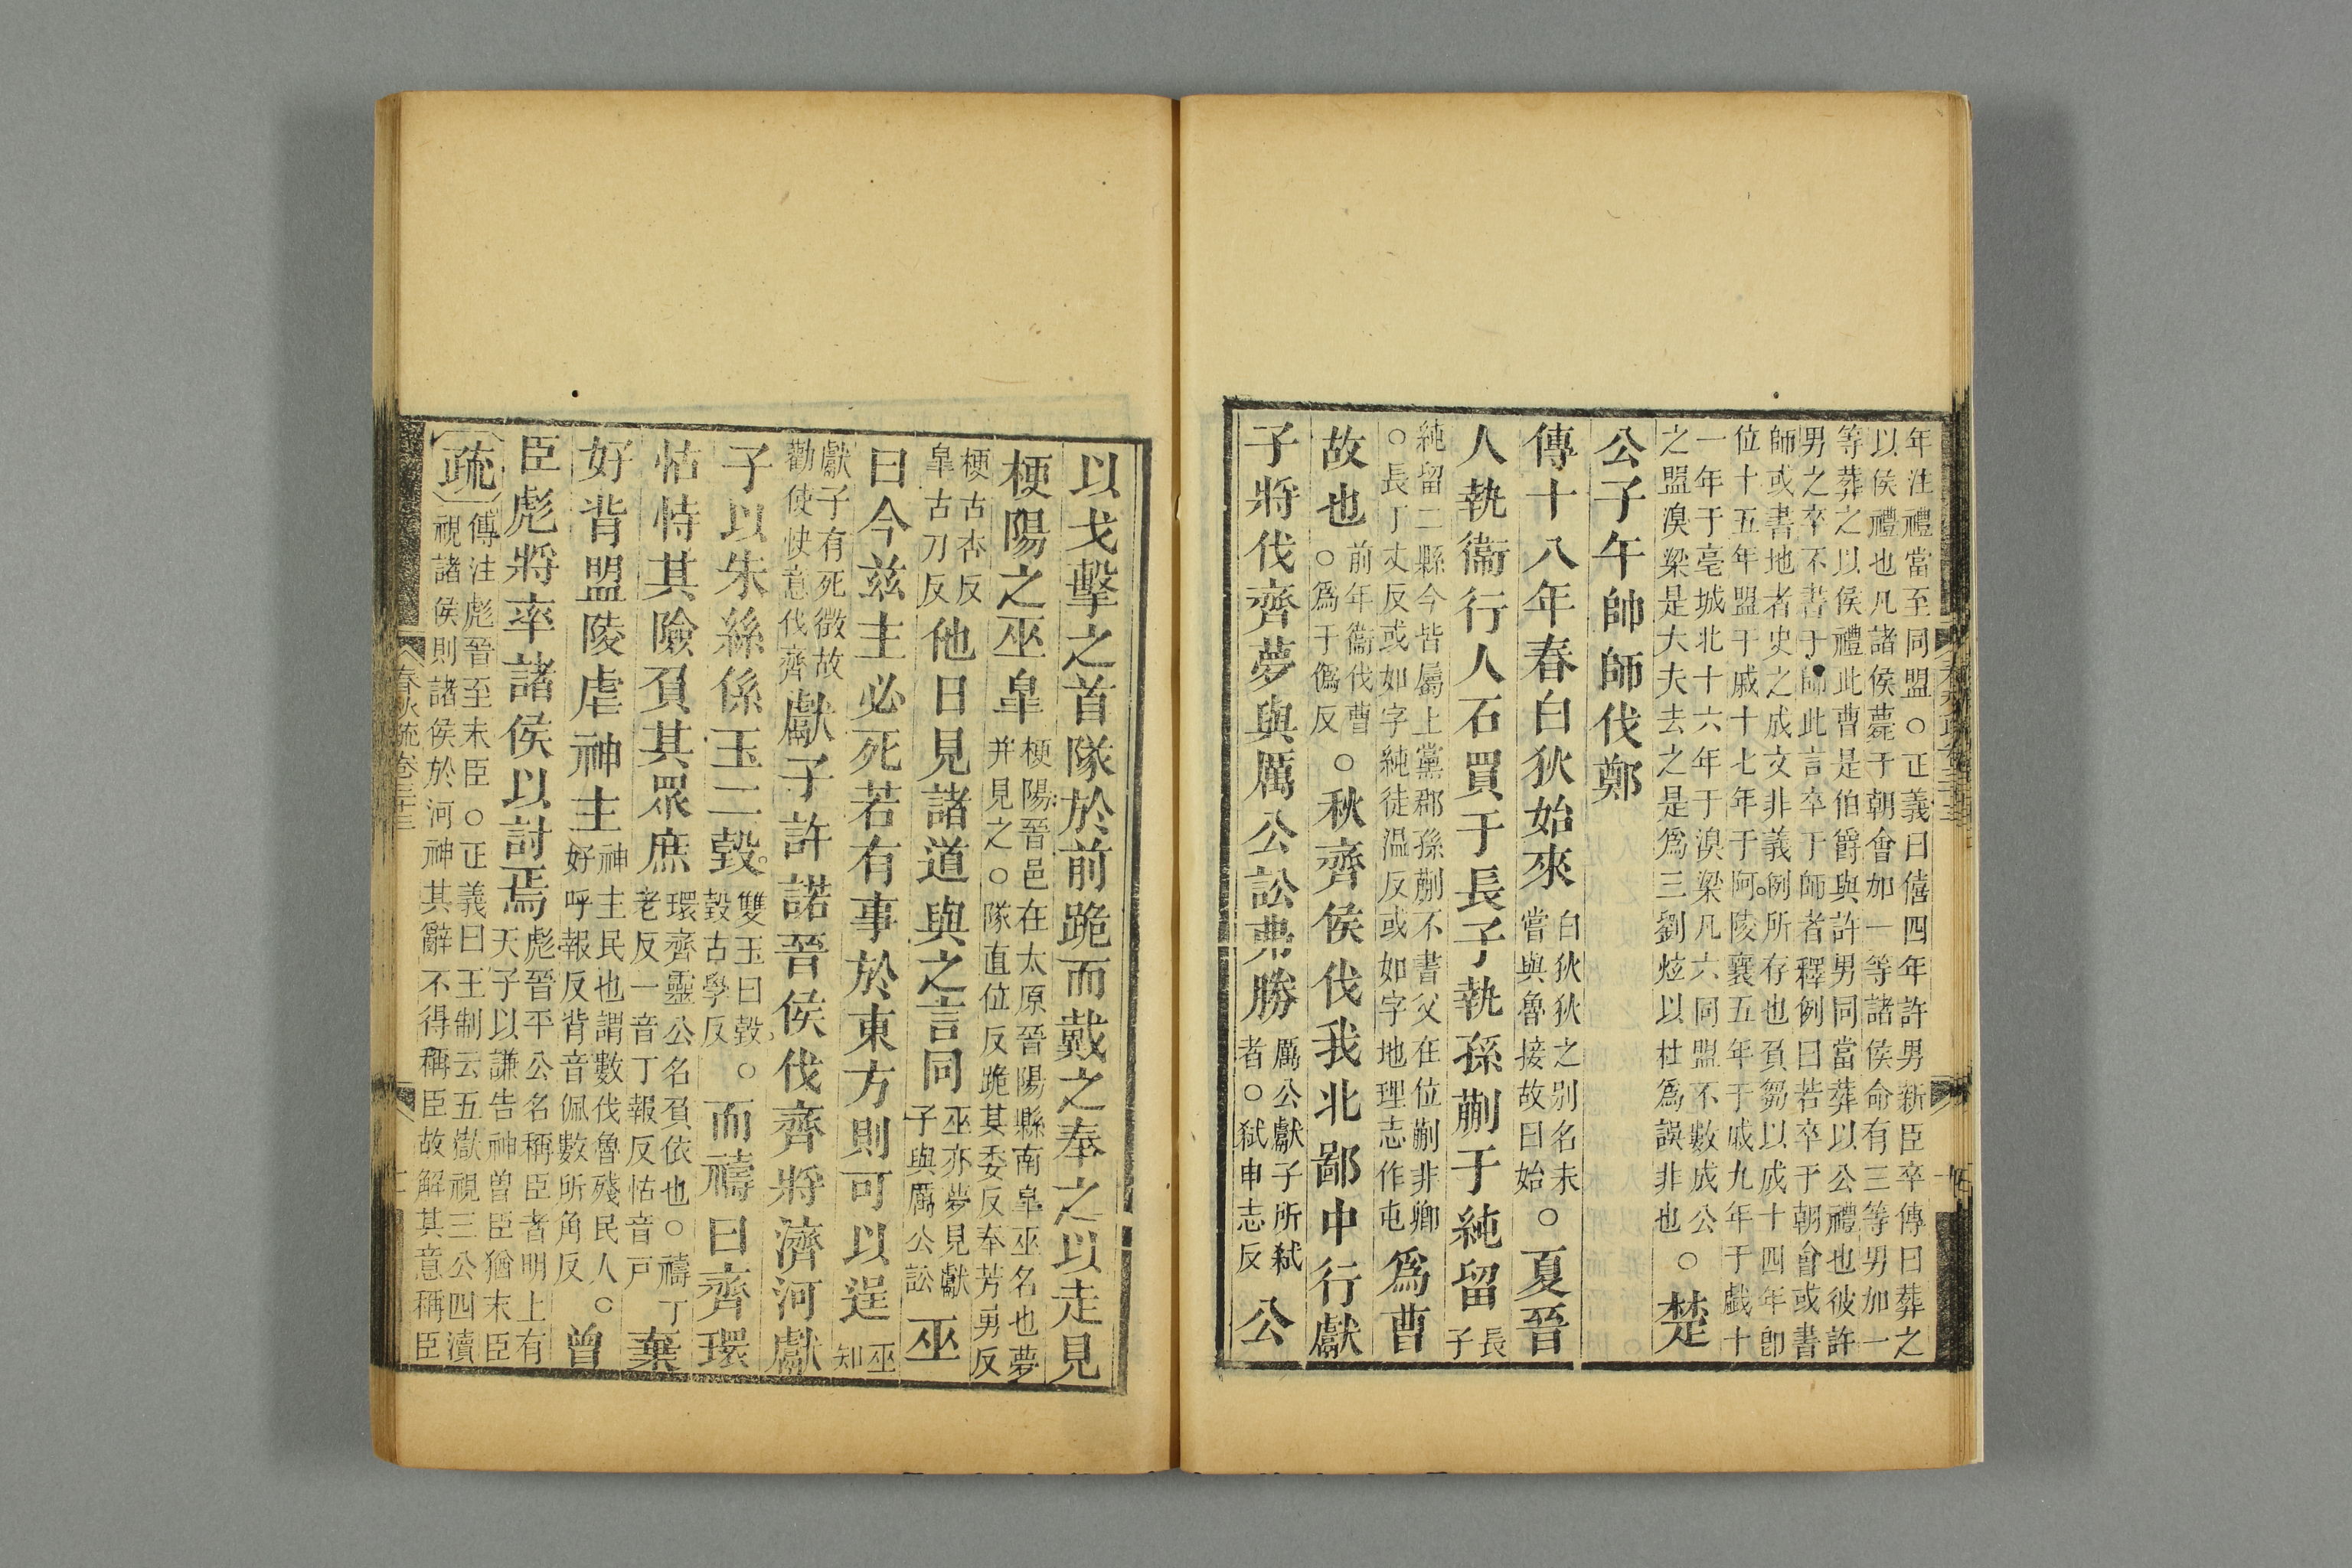 年注禮當至同盟○正義曰僖四年許男新臣卒傳曰葬之
以侯禮也凡諸侯薨于朝會加一等諸侯命有三等男加一
等葬之以侯禮此曹是伯爵與許男同當葬以公禮也彼許
男之卒不書于師此言卒于師者釋例曰若卒于朝會或書
師或書地者史之成文非義例所存也負芻以成十四年卽
位十五年盟于戚十七年于柯陵襄五年于戚九年于戲十
一年于亳城北十六年于湨梁凡六同盟不數成公
之盟湨梁是大夫去之是爲三劉炫以杜爲誤非也○楚
公子午帥師伐鄭
傳十八年春白狄始來白狄狄之别名未嘗與魯接故曰始○夏晉
人執衞行人石買于長子執孫蒯于純留長子
純留二縣今皆屬上黨郡孫蒯不書父在位蒯非卿
○長丁丈反或如字純徒温反或如字地理志作屯爲曹
故也前年衞伐曹○爲于僞反○秋齊侯伐我北鄙中行獻
子將伐齊夢與厲公訟弗勝厲公獻子所弑者○弑申志反公
以戈擊之首隊於前跪而戴之奉之以走見
梗陽之巫皐梗陽晉邑在太原晉陽縣南皐巫名也夢并見之○隊直位反跪其委反奉芳勇反
梗古杏反皐古刀反他日見諸道與之言同巫亦夢見獻子與厲公訟巫
曰今兹主必死若有事於東方則可以逞巫知
獻子有死微故勸使快意伐齊獻子許諾晉侯伐齊將濟河獻
子以朱絲係玉二瑴雙玉曰瑴○瑴古學反而禱曰齊環
怙恃其險負其眾庶環齊靈公名負依也○禱丁老反一音丁報反怙音戸棄
好背盟陵虐神主神主民也謂數伐魯殘民人○好呼報反背音佩數所角反曾
臣彪將率諸侯以討焉彪晉平公名稱臣者明上有天子以謙告神曾臣猶末臣
疏傳注彪晉至末臣○正義曰王制云五嶽視三公四瀆
視諸侯則諸侯於河神其辭不得稱臣故解其意稱臣
春秋疏卷三十三